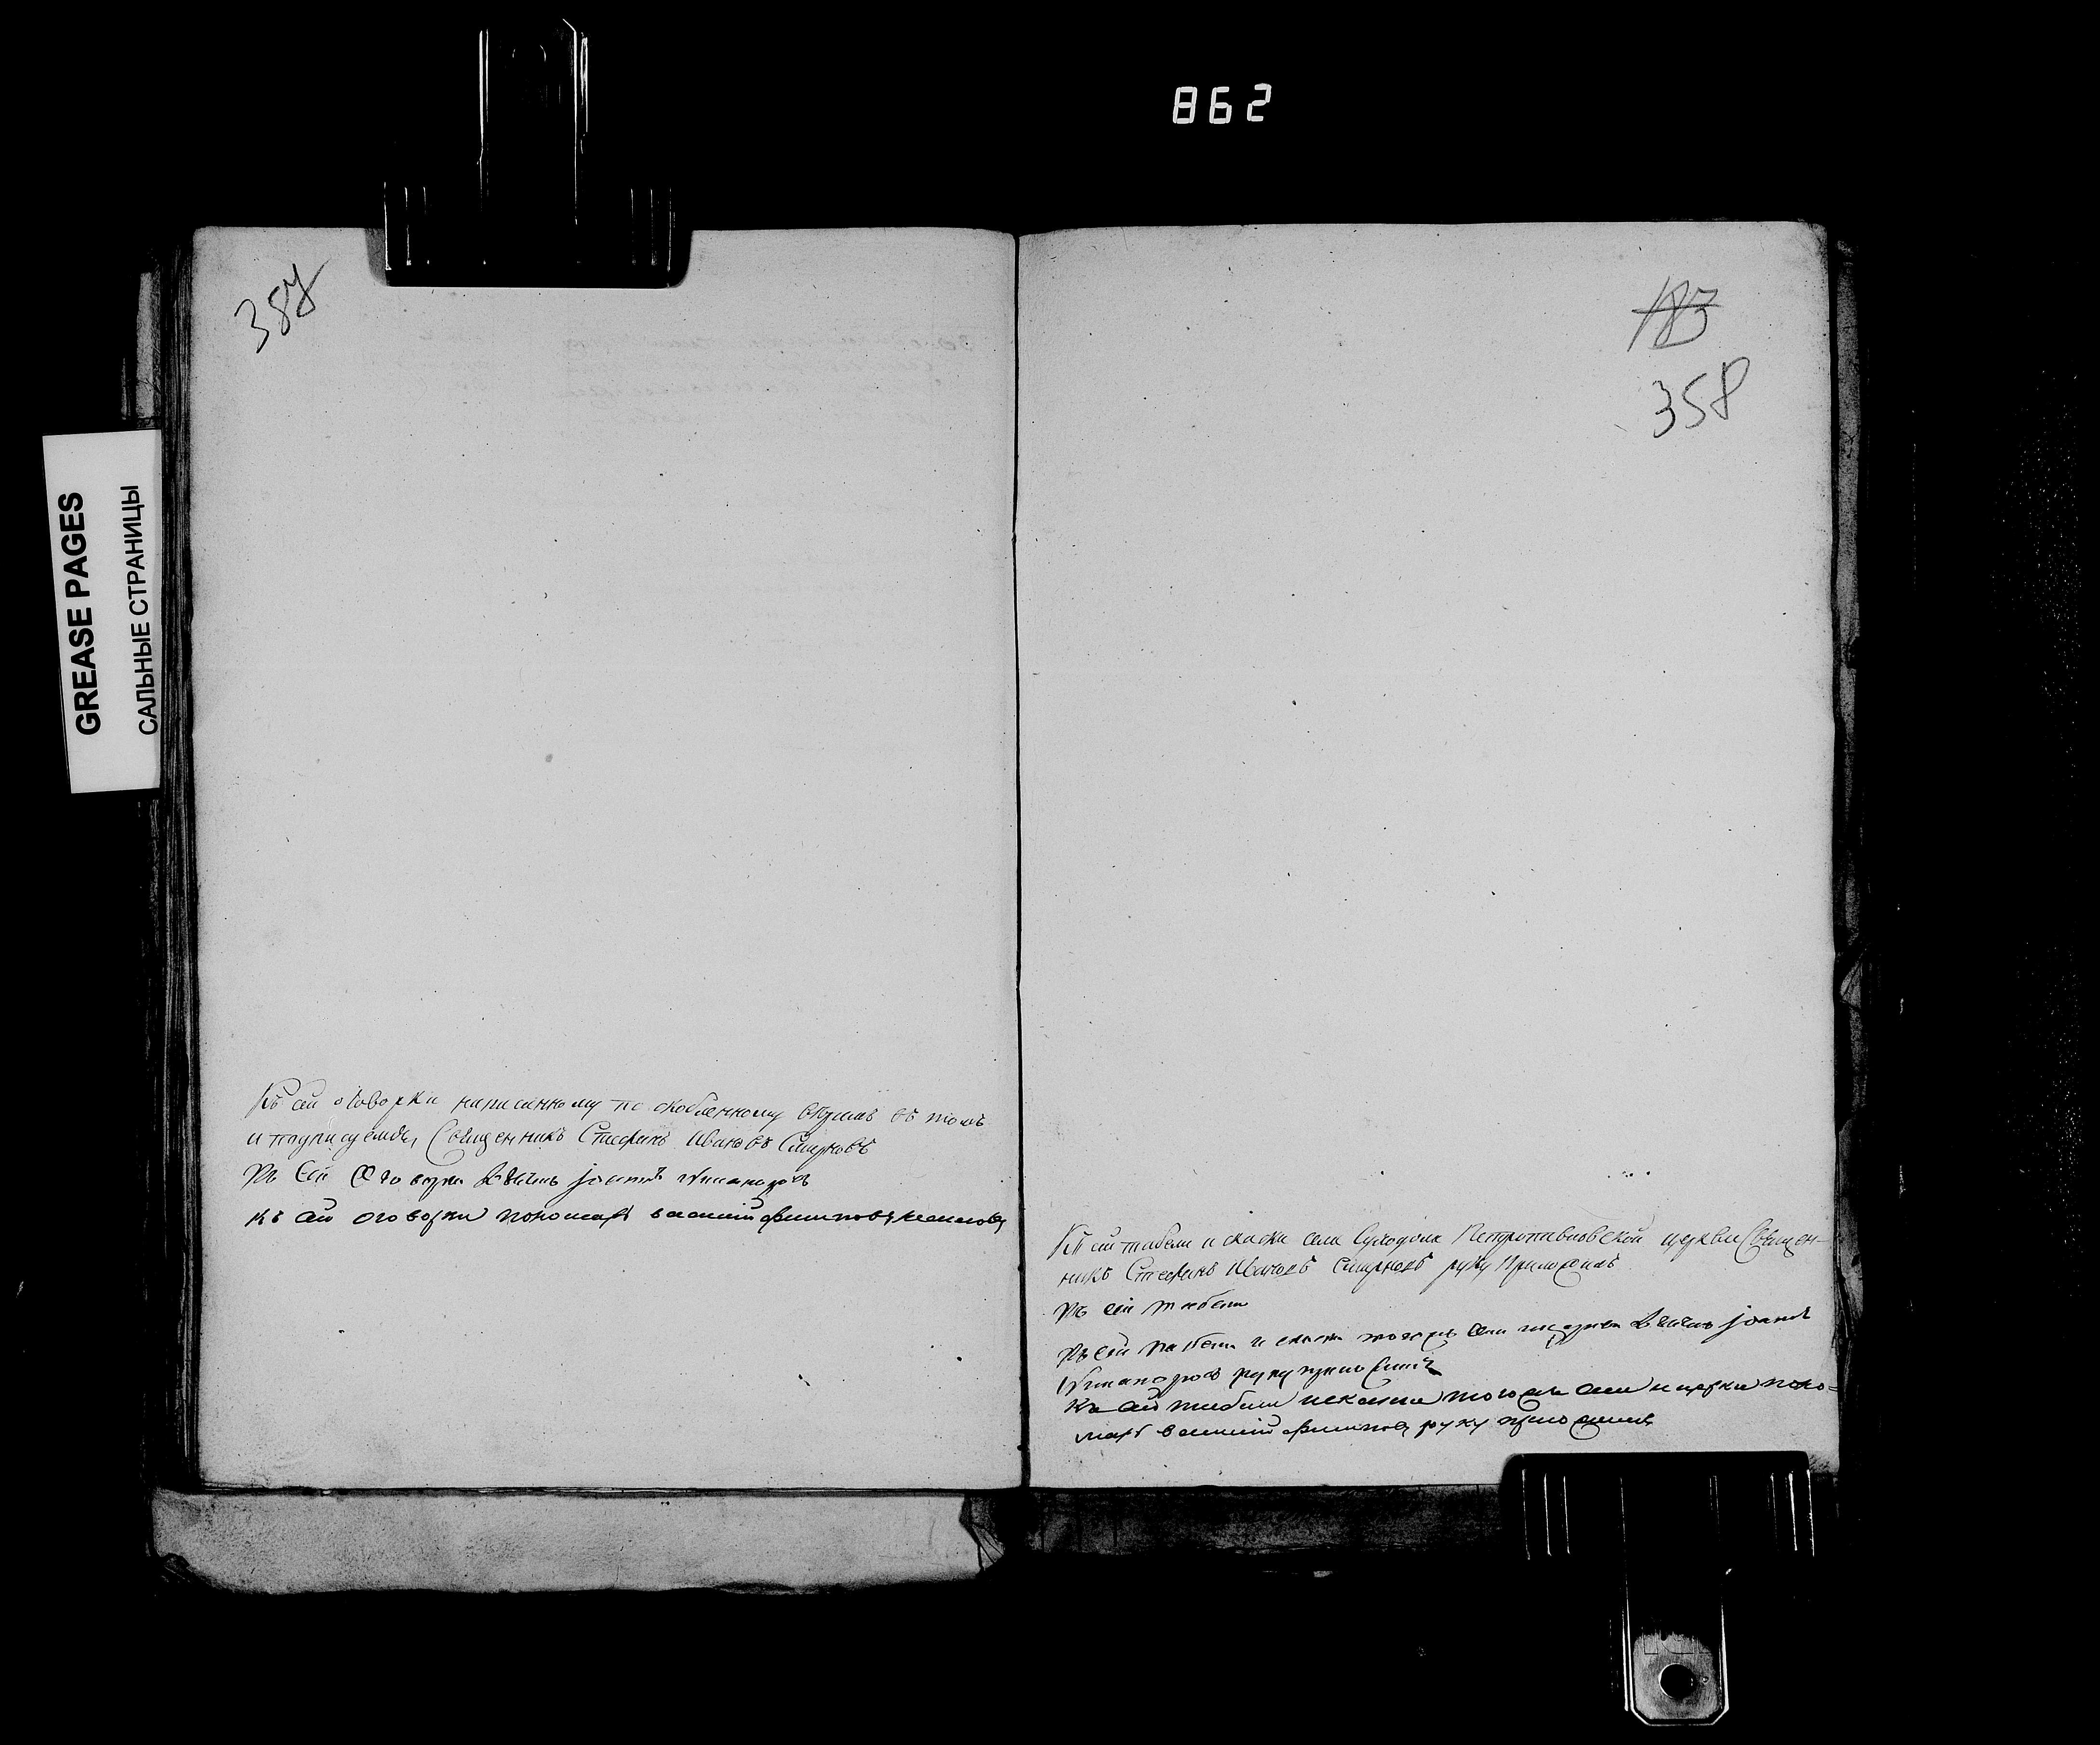 862
387
GREASE PAGES
САЛЬНЫЕ СТРАНИЦЫ
Къ сей оговорки написанному по скобленному въ томъ
и подписуемся, Священникъ Стефанъ Ивановъ Смирновъ
Къ сей оговорки
къ сей оговорки пономарь василий филиповъ
183
358
Къ сей табели и скаски села Суходола Петропавловской церкви Священ-
никъ Стефанъ Ивановъ Смирновъ руку Приложилъ
Къ сей табели
Къ сей табели и скаски тогожъ села
руку приложилъ
Къ сей табели и скаски тогожъ села и церкви поно-
марь василий филиповъ руку приложилъ